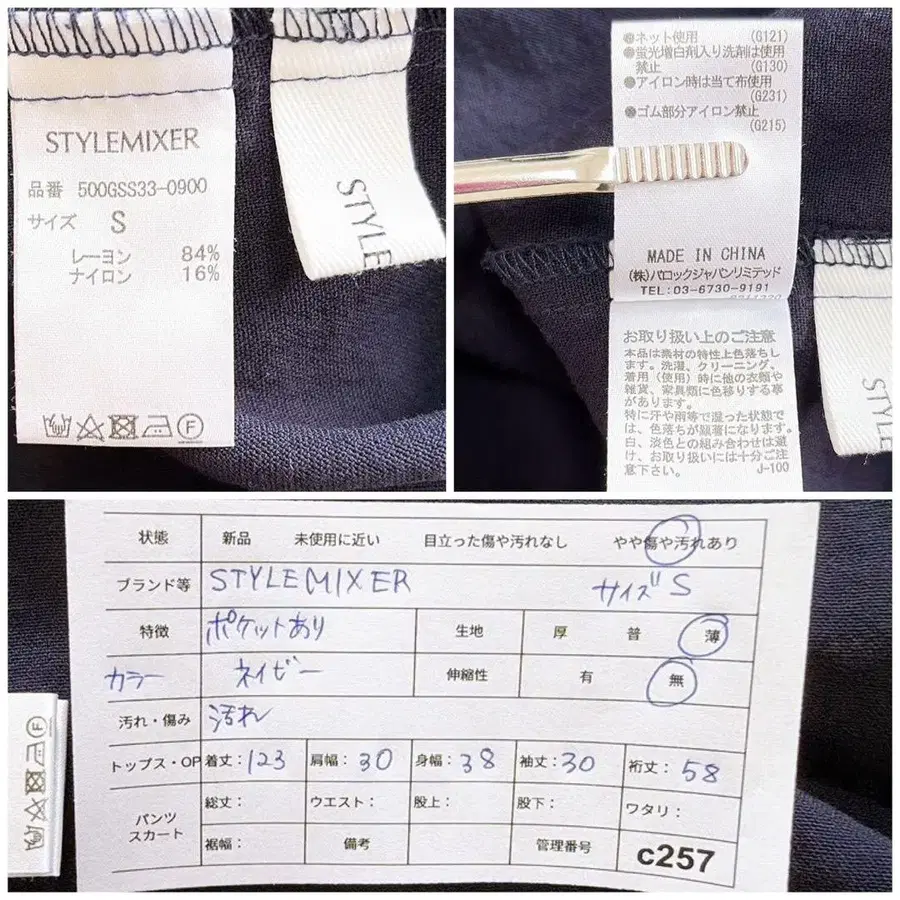 STYLEMIXER
品番 500GSS33-0900
サイズ S
レーヨン 84%
ナイロン 16%
STYLE
●ネット使用 (G121)
●蛍光増白剤入り洗剤は使用
禁止 (G130)
●アイロン時は当て布使用
(G231)
●ゴム部分アイロン禁止
(G215)
MADE IN CHINA
(株)バロックジャパンリミテッド
TEL:03-6730-9191
お取り扱い上のご注意
本品は素材の特性上色落ちし
ます。洗濯、クリーニング、
着用(使用)時に他の衣類や
雑貨、家具類に色移りする事
があります。
特に汗や雨等で湿った状態で
は、色落ちが顕著になります。
白、淡色との組み合わせは避
け、お取り扱いには十分ご注
意下さい。 J-100
STYLE
状態 新品 未使用に近い 目立った傷や汚れなし やや傷や汚れあり
ブランド等 STYLEMIXER サイズ S
特徴 ポケットあり 生地 厚 普 薄
カラー ネイビー 伸縮性 有 無
汚れ・傷み 汚れ
トップス・OP 着丈:123 肩幅:30 身幅:38 袖丈:30 裄丈:58
パンツ スカート 総丈: ウエスト: 股上: 股下: ワタリ:
裾幅: 備考 管理番号 c257